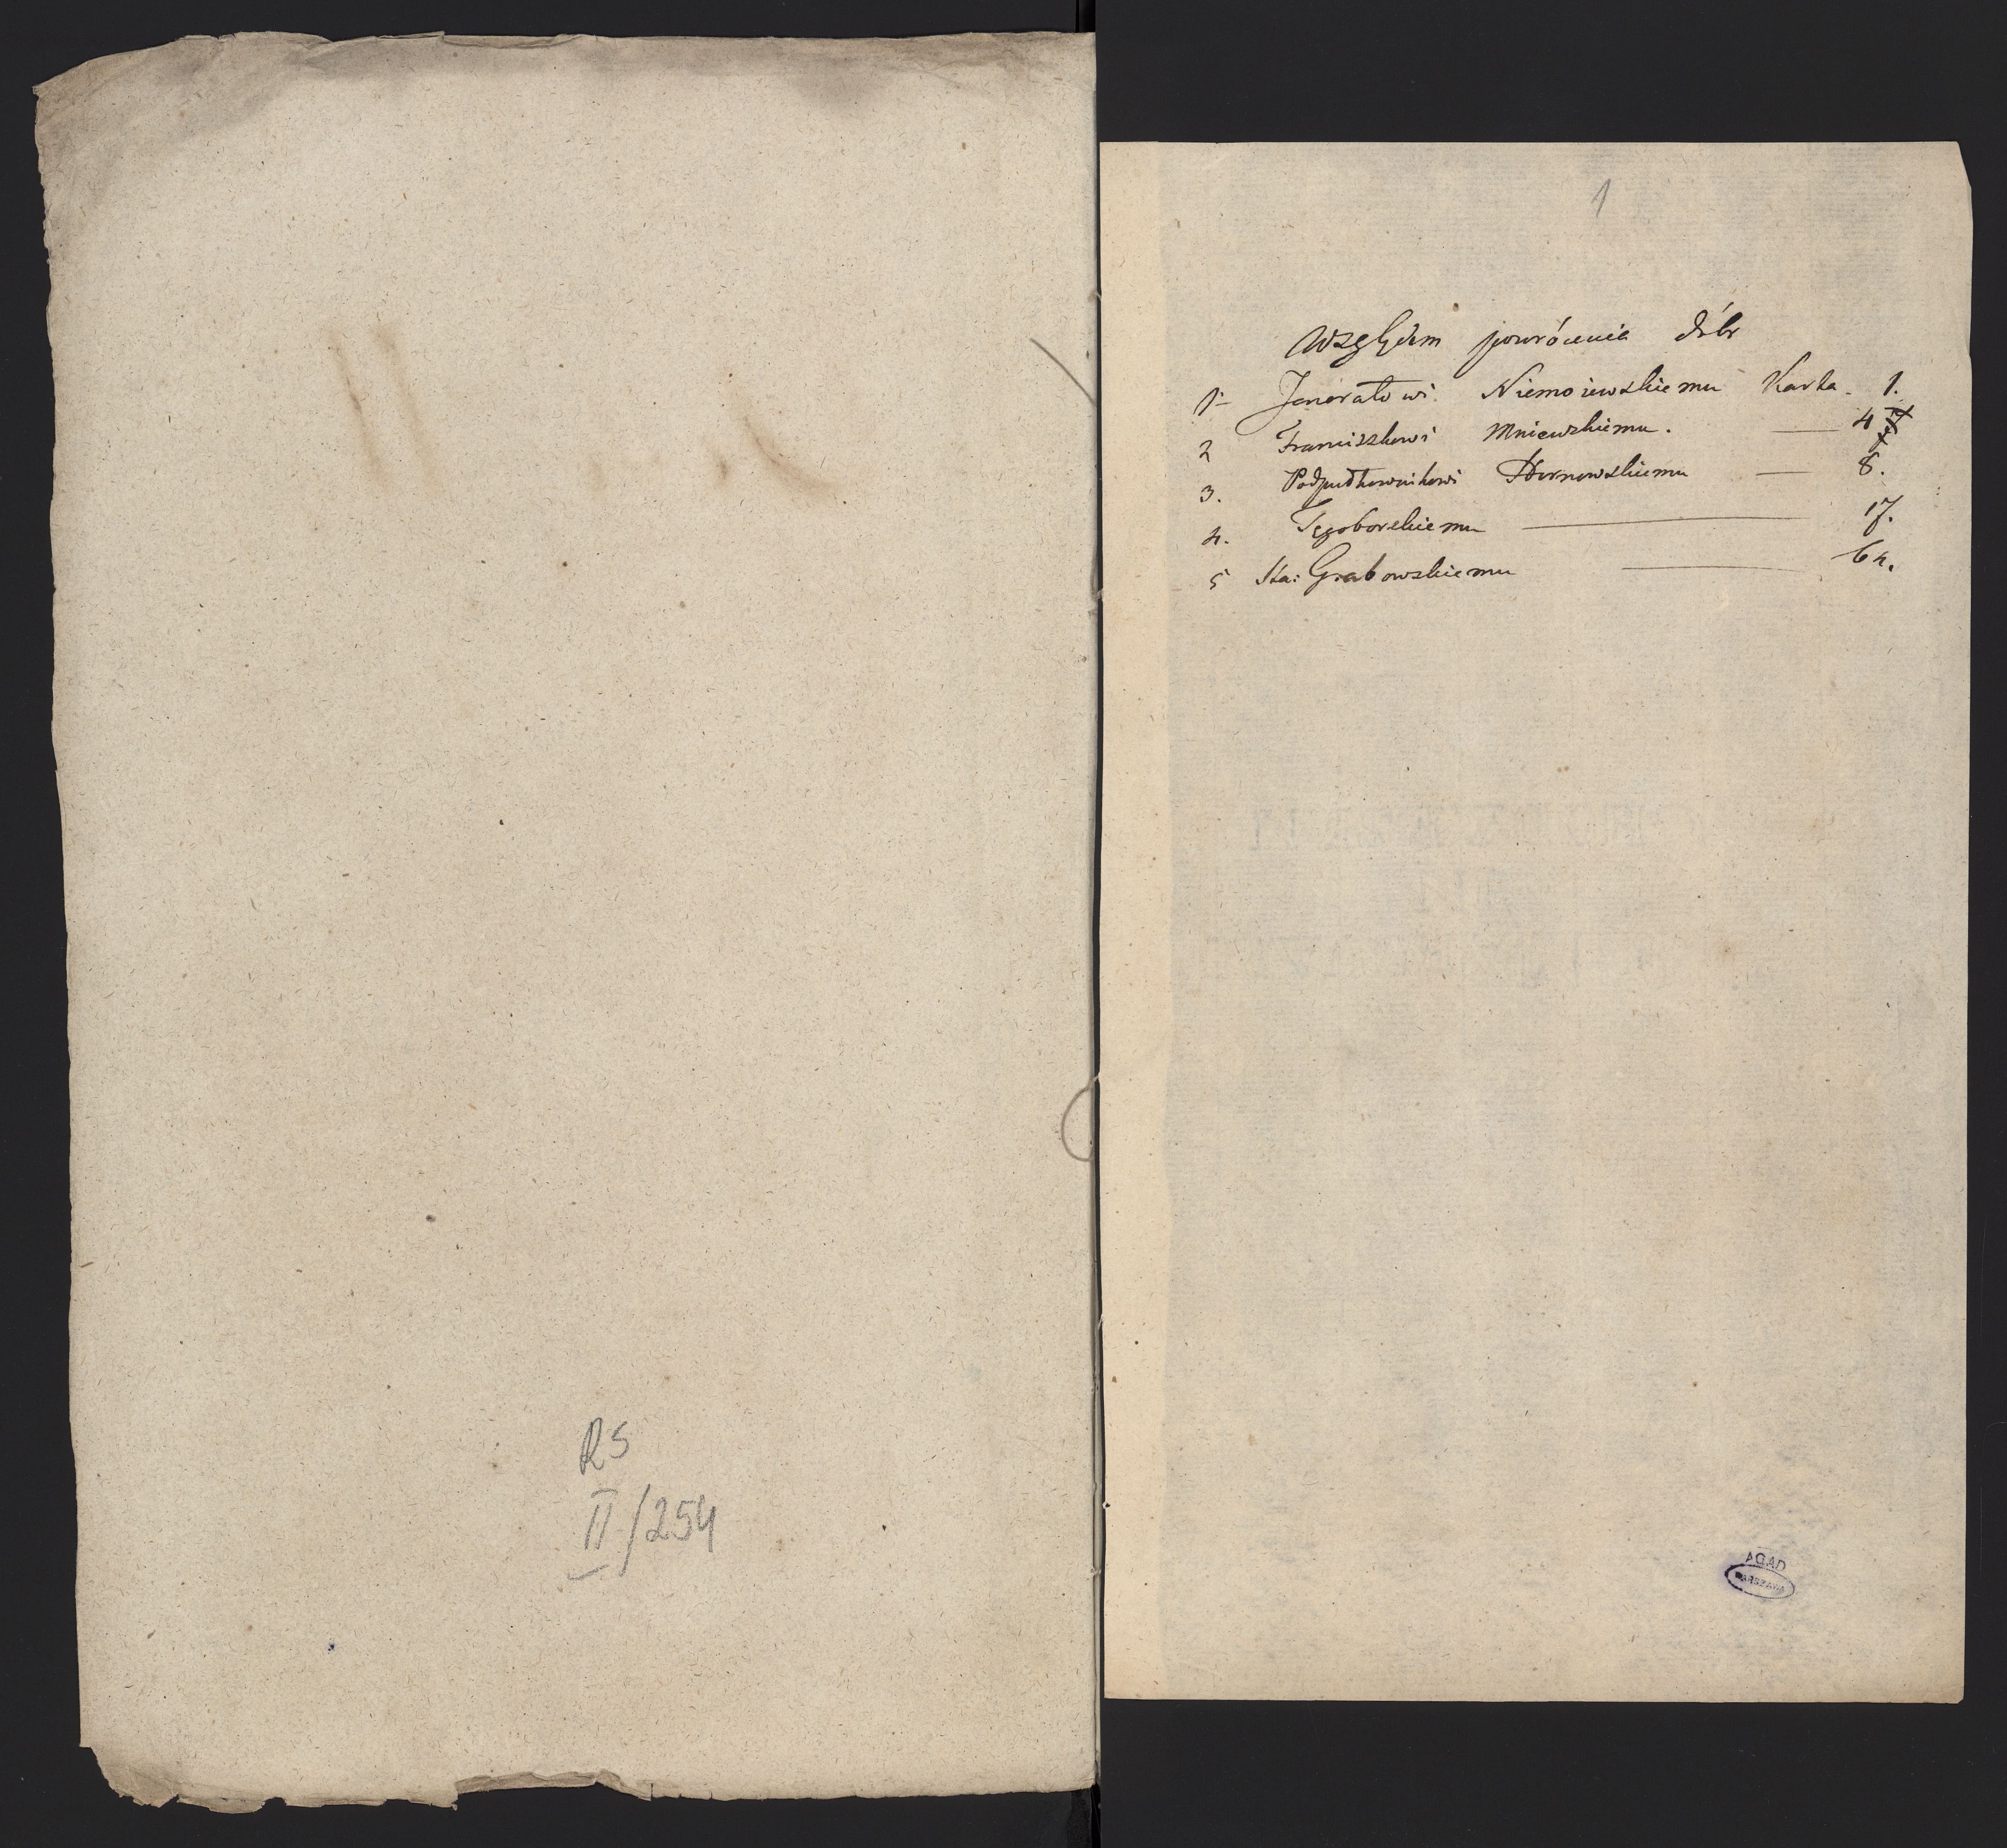 RS
II/254
1
Względem powrócenia dóbr
1- Jenerałowi Niemoiewskiemu Karta. 1.
2 Franciszkowi Mniewskiemu. — 4
3. Podpułkownikowi Hornowskiemu — 8.
4. Tęgoborskiemu — 17.
5 Sta: Grabowskiemu — 64.
AGAD
WARSZAWA